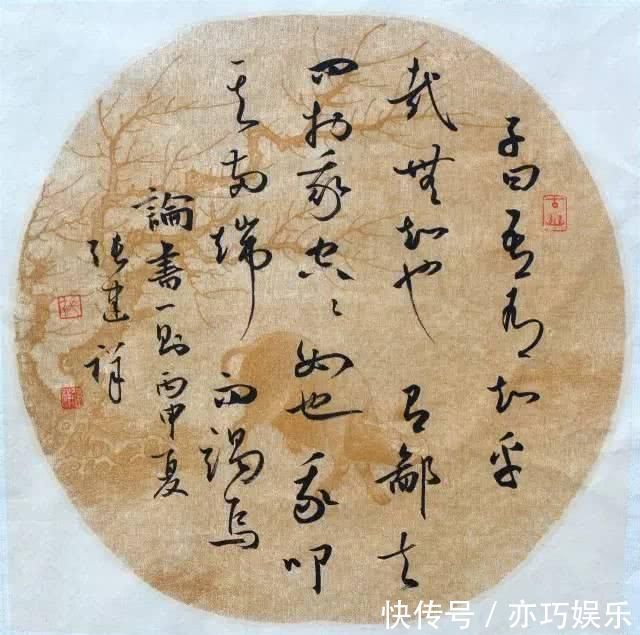 子曰吾有知乎
哉無知也有鄙夫
问於我空〻如也我叩
其两端而竭焉
論書一则丙申夏
张建祥
快传号 / 亦巧娱乐